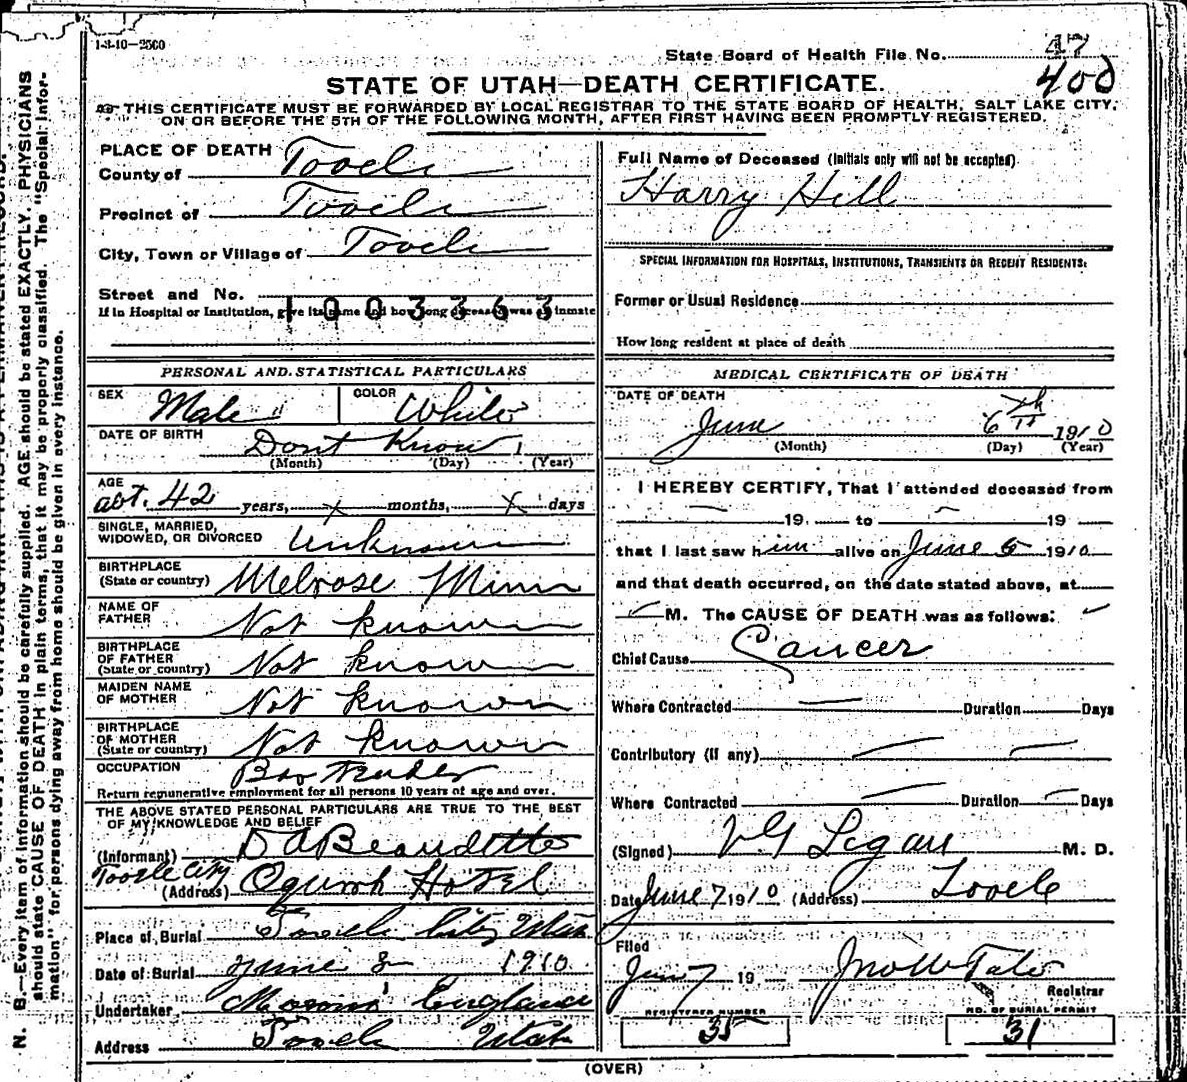 1-3-10—2500
State Board of Health File No. 47
400
STATE OF UTAH—DEATH CERTIFICATE.
THIS CERTIFICATE MUST BE FORWARDED BY LOCAL REGISTRAR TO THE STATE BOARD OF HEALTH, SALT LAKE CITY,
ON OR BEFORE THE 5TH OF THE FOLLOWING MONTH, AFTER FIRST HAVING BEEN PROMPTLY REGISTERED.
PLACE OF DEATH
County of Tooele
Precinct of Tooele
City, Town or Village of Tooele
Street and No.
1003363
If in Hospital or Institution, give its name and how long deceased was an inmate
PERSONAL AND STATISTICAL PARTICULARS
SEX Male
COLOR White
DATE OF BIRTH Dont Know 1
(Month) (Day) (Year)
AGE
abt. 42 years, x months, x days
SINGLE, MARRIED,
WIDOWED, OR DIVORCED Unknown
BIRTHPLACE
(State or country) Melrose Minn
NAME OF
FATHER Not known
BIRTHPLACE
OF FATHER
(State or country) Not known
MAIDEN NAME
OF MOTHER Not known
BIRTHPLACE
OF MOTHER
(State or country) Not known
OCCUPATION
Return remunerative employment for all persons 10 years of age and over.
THE ABOVE STATED PERSONAL PARTICULARS ARE TRUE TO THE BEST
OF MY KNOWLEDGE AND BELIEF
(Informant) D A Beaudette
Tooele City
(Address) Oquirrh Hotel
Place of Burial Tooele City Utah
Date of Burial June 8 1910
Undertaker England
Address Tooele Utah
Full Name of Deceased (Initials only will not be accepted)
Harry Hill
SPECIAL INFORMATION FOR HOSPITALS, INSTITUTIONS, TRANSIENTS OR RECENT RESIDENTS:
Former or Usual Residence
How long resident at place of death
MEDICAL CERTIFICATE OF DEATH
DATE OF DEATH
June 6th 1910
(Month) (Day) (Year)
I HEREBY CERTIFY, That I attended deceased from
19 to 19
that I last saw him alive on June 5 1910
and that death occurred, on the date stated above, at
M. The CAUSE OF DEATH was as follows:
Chief Cause Cancer
Where Contracted Duration Days
Contributory (if any)
Where Contracted Duration Days
(Signed) M. D.
Date June 7 1910 (Address) Tooele
Filed
June 7 19
Registrar
REGISTERED NUMBER
35
NO. OF BURIAL PERMIT
31
(OVER)
N. B.—Every item of information should be carefully supplied. AGE should be stated EXACTLY. PHYSICIANS
should state CAUSE OF DEATH in plain terms, that it may be properly classified. The "Special Infor-
mation" for persons dying away from home should be given in every instance.